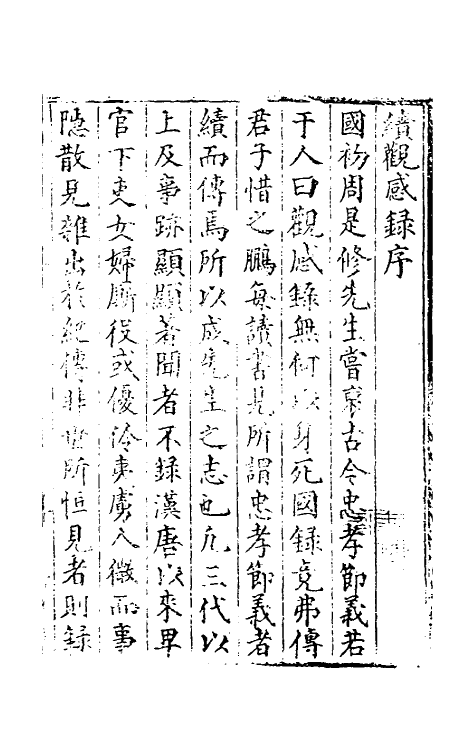 續觀感録序
國初周是修先生嘗裒古今忠孝節義若
干人曰觀感録無何以身死國録竟弗傳
君子惜之鵬每讀書見所謂忠孝節義者
績而傳焉所以成先生之志也凡三代以
上及事跡顯顯著聞者不録漢唐以來卑
官下吏女婦厮役或優伶夷虜人微而事
隱散見雜出於紀傳非世所恒見者則録